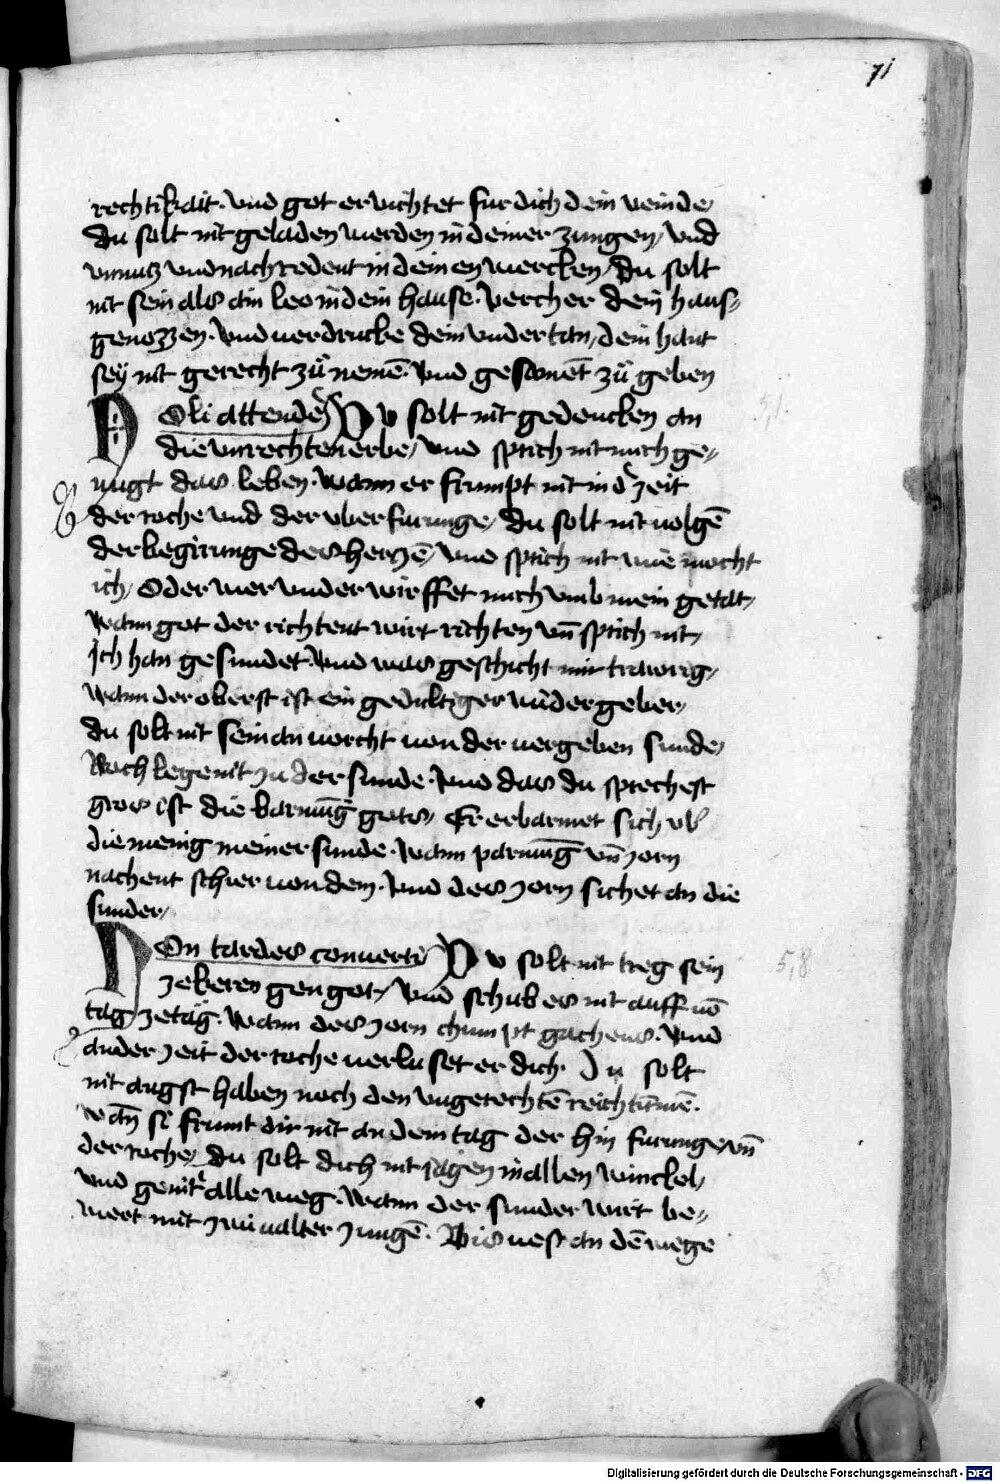 71
rechtikait. vnd got ervichtet fur dich dein veinde/
du solt nit geladen werden in deiner zungen/ vnd
vnnutz vnd nachredent in deinen wercken/ du solt
nit sein als ain leo in dein hause. vercher dein haus=
genozzen. vnd verdrucke dein vndertan/ dein hant
sey nit gerecht zů nemē. vnd gesament zů geben
Noli attende(re) Du solt nit gedencken an
die vnrechten erbe/ vnd sprich nit mich ge=
nugt das leben. wann er frumpt nit in d(er) zeit
der rache vnd der vberfurunge/ du solt nit uolgē
der begirunge des herczē/ vnd sprich nit wie mocht
ich/ Oder wer vnderwirffet mich vmb mein getat/
wann got der richtent wirt richten vn̄ sprich nit/
Ich han gesundet. vnd was geschicht mir trawrig/
wann der oberst ist ein gedultiger widergeber/
du solt nit sein an vorcht von der vergeben sunde/
Noch lege nit zu der sunde. vnd das du sprechest
gros ist die barmūg gots/ Er erbarmet sich vb(er)
die menig meiner sunde. wann parmūg vn̄ zorn
nachent schier von dem. vnd des zorn sichet an die
sunder/
5,8
Non tardes conuerti Du solt nit treg sein
zekeren gen got/ vnd schub es nit auff uō
tag ze tag. wann des zorn chumpt gachens. vnd
ander zeit der rache verluset er dich. Du solt
nit angst haben noch den vngerechtē reichtumē.
wañ si frumt dir nit an dem tag der hin furunge vn̄
der rache/ du solt dich nit jagen in allen winckel/
vnd gent alle weg. wann der sunder wirt be=
wert mit zwiualter zungē. Bis vest an dē wege
Digitalisierung gefördert durch die Deutsche Forschungsgemeinschaft - DFG